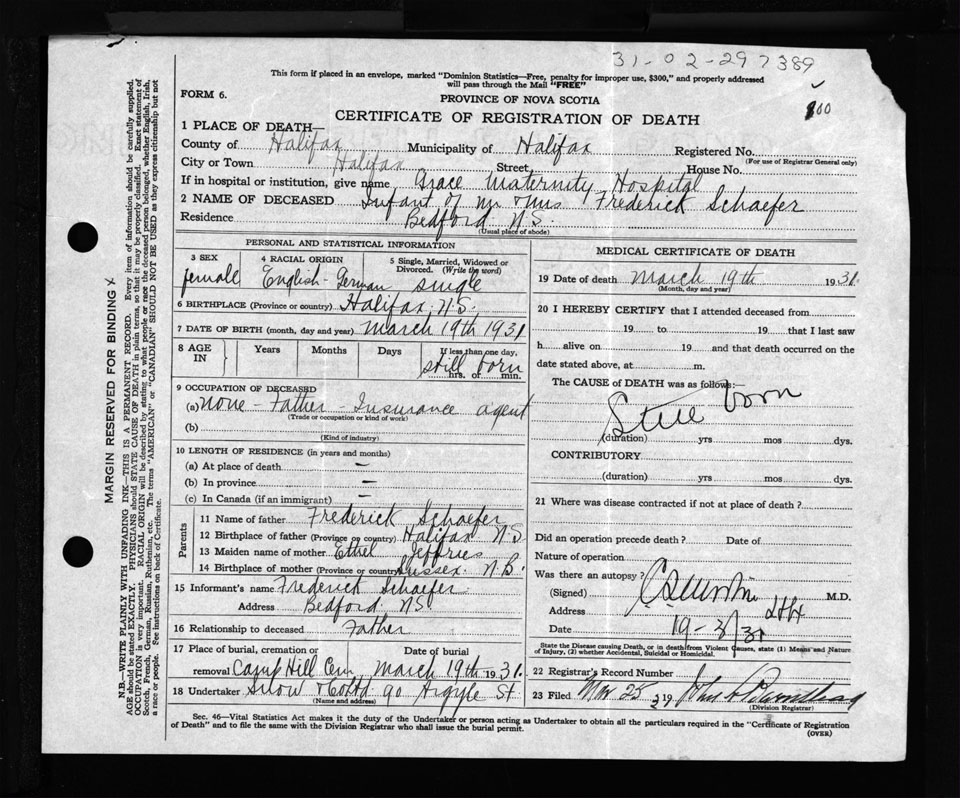 31-02-297389
100
This form if placed in an envelope, marked "Dominion Statistics—Free, penalty for improper use, $300," and properly addressed
will pass through the Mail "FREE"
FORM 6.
PROVINCE OF NOVA SCOTIA
CERTIFICATE OF REGISTRATION OF DEATH
1 PLACE OF DEATH—
County of Halifax Municipality of Halifax Registered No.
(For use of Registrar General only)
City or Town Halifax Street House No.
If in hospital or institution, give name Grace Maternity Hospital
2 NAME OF DECEASED Infant of Mr & Mrs Frederick Schaefer
Residence Bedford N.S.
(Usual place of abode)
PERSONAL AND STATISTICAL INFORMATION
3 SEX 4 RACIAL ORIGIN 5 Single, Married, Widowed or
Divorced. (Write the word)
female English-German single
6 BIRTHPLACE (Province or country) Halifax, N.S.
7 DATE OF BIRTH (month, day and year) March 19th 1931
8 AGE IN Years Months Days If less than one day,
still born
hrs. or min.
9 OCCUPATION OF DECEASED
(a) none - Father - Insurance agent
(Trade or occupation or kind of work)
(b)
(Kind of industry)
10 LENGTH OF RESIDENCE (in years and months)
(a) At place of death —
(b) In province —
(c) In Canada (if an immigrant) —
Parents
11 Name of father Frederick Schaefer
12 Birthplace of father (Province or country) Halifax N.S
13 Maiden name of mother Ethel Jeffries
14 Birthplace of mother (Province or country) Sussex N.B.
15 Informant's name Frederick Schaefer
Address Bedford NS
16 Relationship to deceased Father
17 Place of burial, cremation or Date of burial
removal Camp Hill Cem March 19th 1931.
18 Undertaker Snow & Co Ltd 90 Argyle St.
(Name and address)
MEDICAL CERTIFICATE OF DEATH
19 Date of death March 19th 1931.
(Month, day and year)
20 I HEREBY CERTIFY that I attended deceased from
19 to 19 that I last saw
h alive on 19 and that death occurred on the
date stated above, at m.
The CAUSE of DEATH was as follows:—
Still born
(duration) yrs mos dys.
CONTRIBUTORY
(duration) yrs mos dys.
21 Where was disease contracted if not at place of death?
Did an operation precede death? Date of
Nature of operation
Was there an autopsy?
(Signed) M.D.
Address
Date 19-3/31
State the Disease causing Death, or in death from Violent Causes, state (1) Means and Nature
of Injury, (2) whether Accidental, Suicidal or Homicidal.
22 Registrar's Record Number
23 Filed Mar 25 John
(Division Registrar)
Sec. 46—Vital Statistics Act makes it the duty of the Undertaker or person acting as Undertaker to obtain all the particulars required in the "Certificate of Registration
of Death" and to file the same with the Division Registrar who shall issue the burial permit.
(OVER)
MARGIN RESERVED FOR BINDING
N.B.—WRITE PLAINLY WITH UNFADING INK—THIS IS A PERMANENT RECORD. Every item of information should be carefully supplied.
AGE should be stated EXACTLY. PHYSICIANS should STATE CAUSE OF DEATH in plain terms, so that it may be properly classified. Exact statement of
OCCUPATION is very important. RACIAL ORIGIN will be described by stating to what people or race the deceased person belonged, whether English, Irish,
Scotch, French, German, Russian, Ruthenian, etc. The terms "AMERICAN" or "CANADIAN" SHOULD NOT BE USED as they express citizenship but not
a race or people. See instructions on back of Certificate.